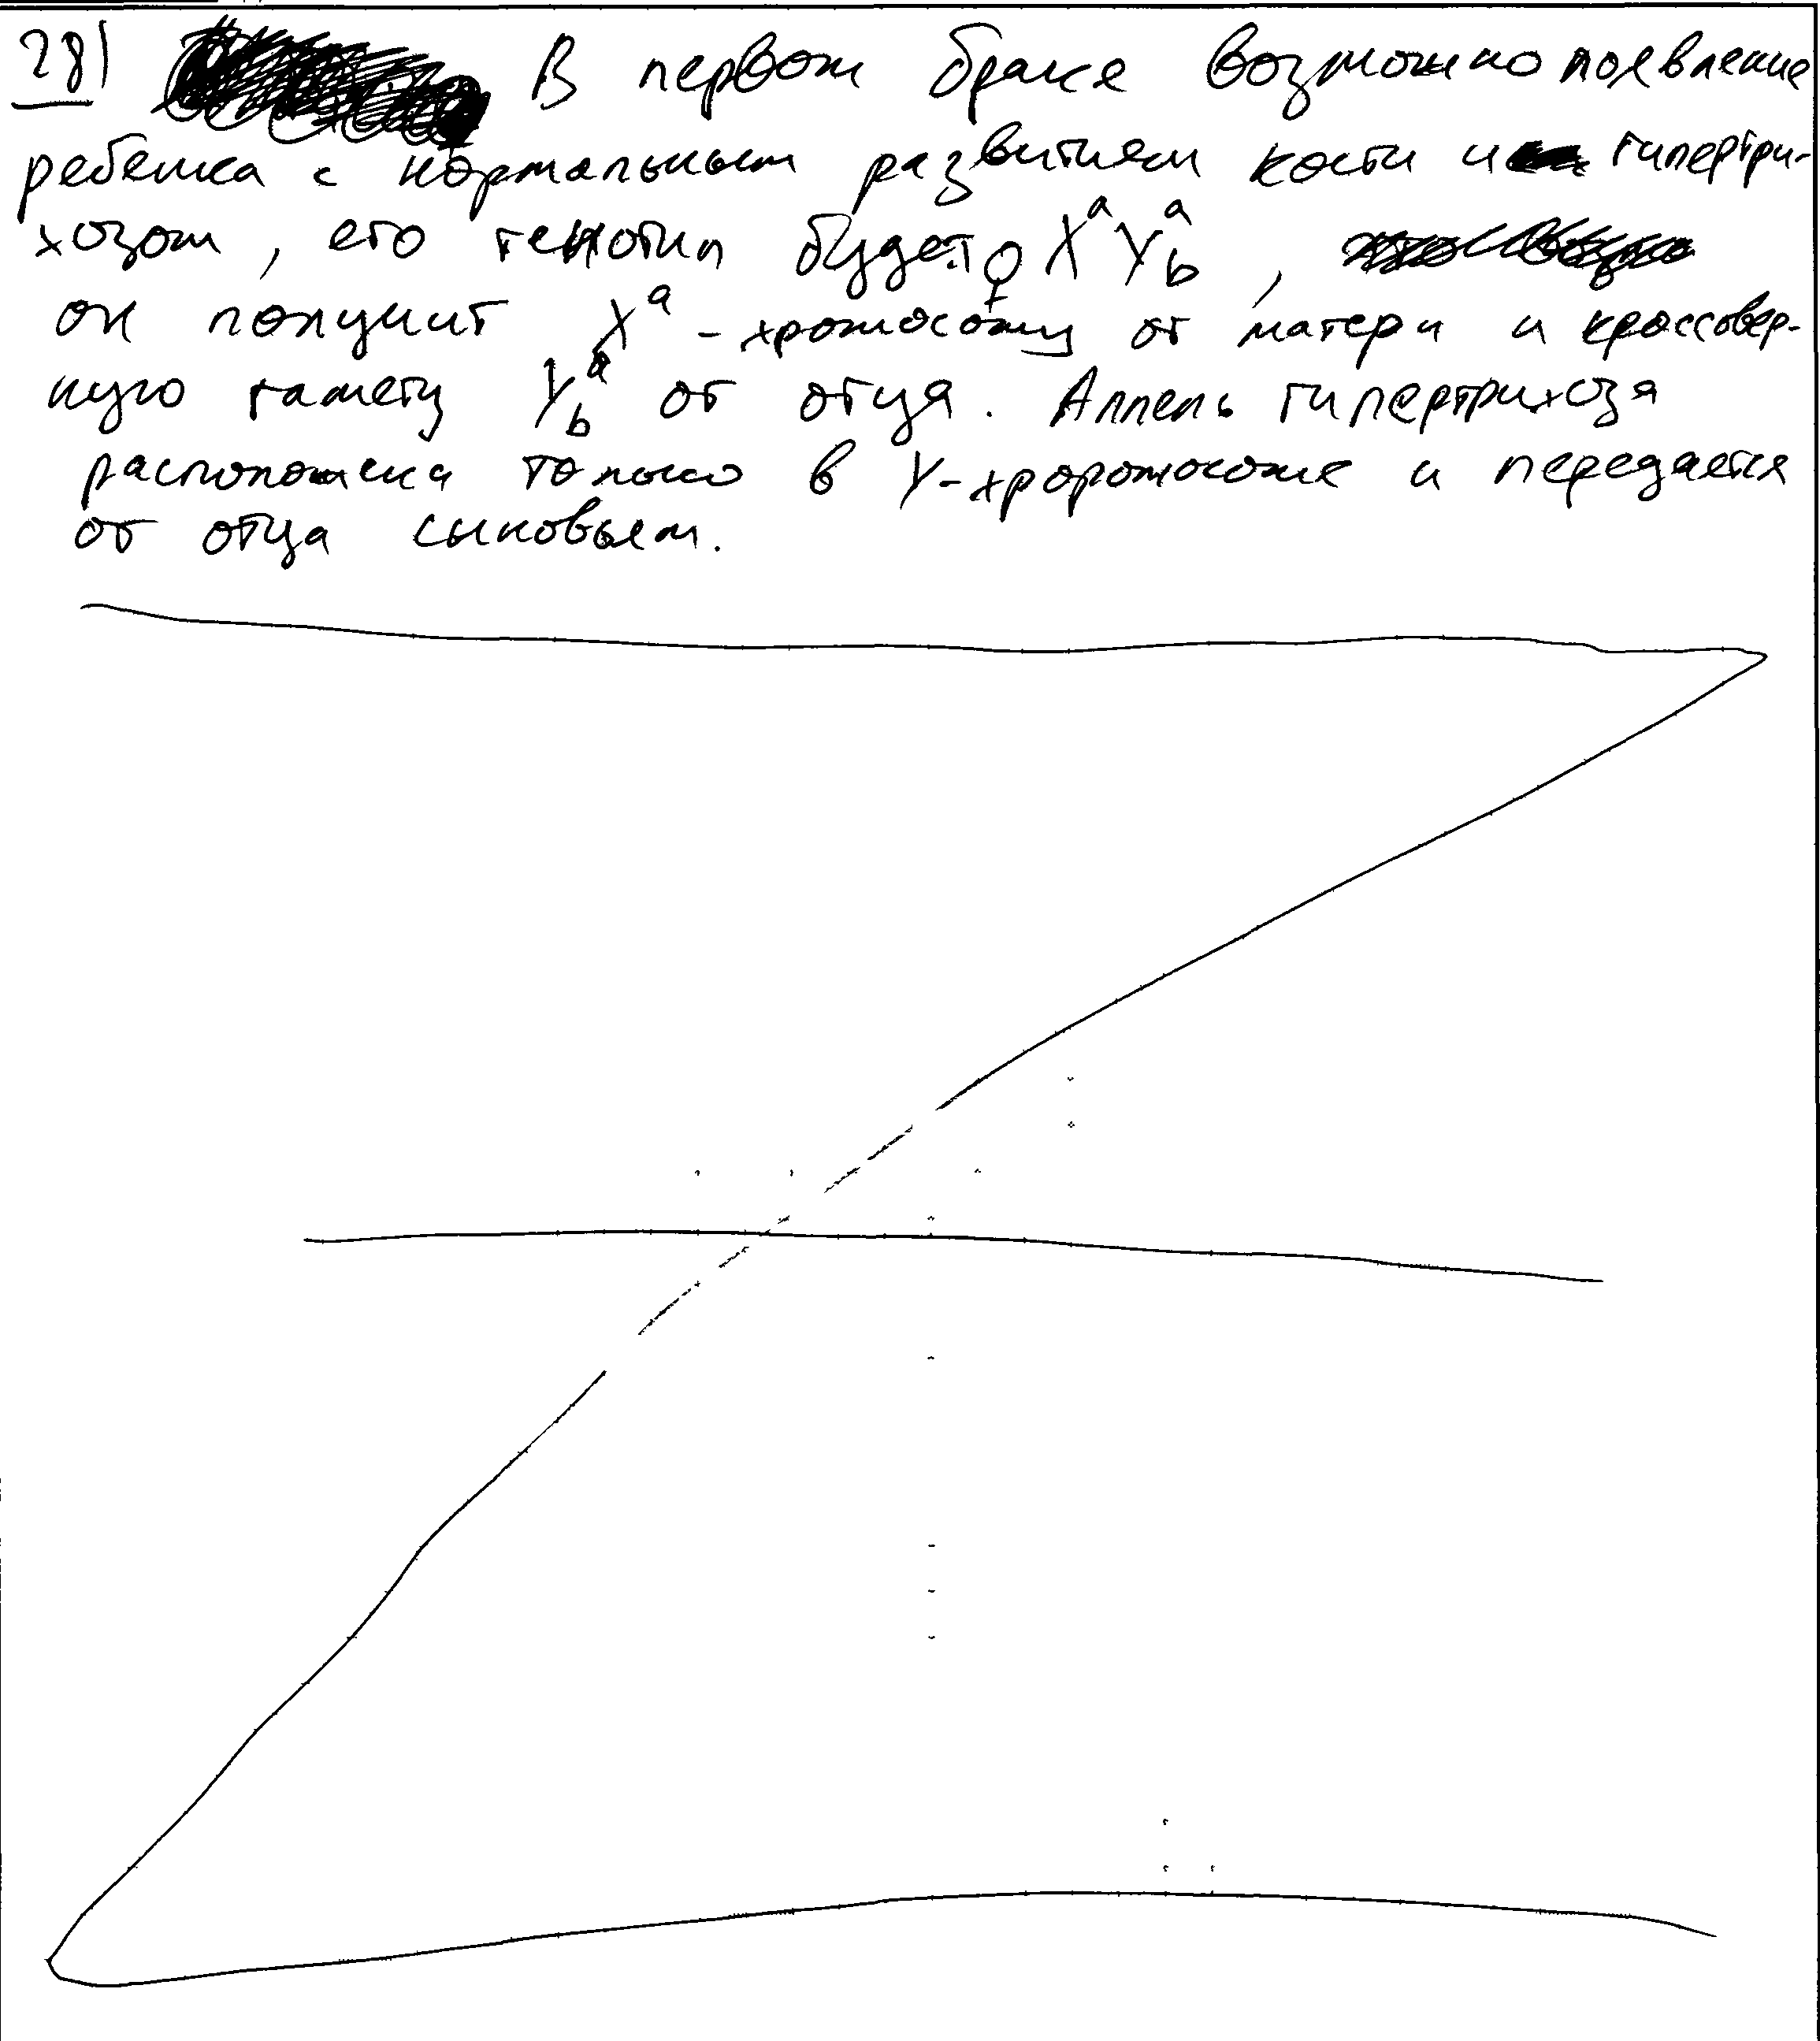 28) В первом браке возможно появление
ребёнка с нормальным развитием кости и гипертри-
хозом, его генотип будет ♀ XᵃYᵃb,
он получит Xᵃ - хромосому от матери и кроссовер-
ную гамету Yᵃb от отца. Аллель гипертрихоза
расположена только в Y-хроромосоме и передается
от отца сыновьям.